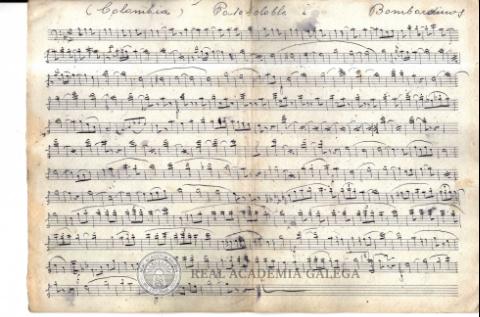 (Colombia) Pasodoble Bombardinos
REAL ACADEMIA GALEGA